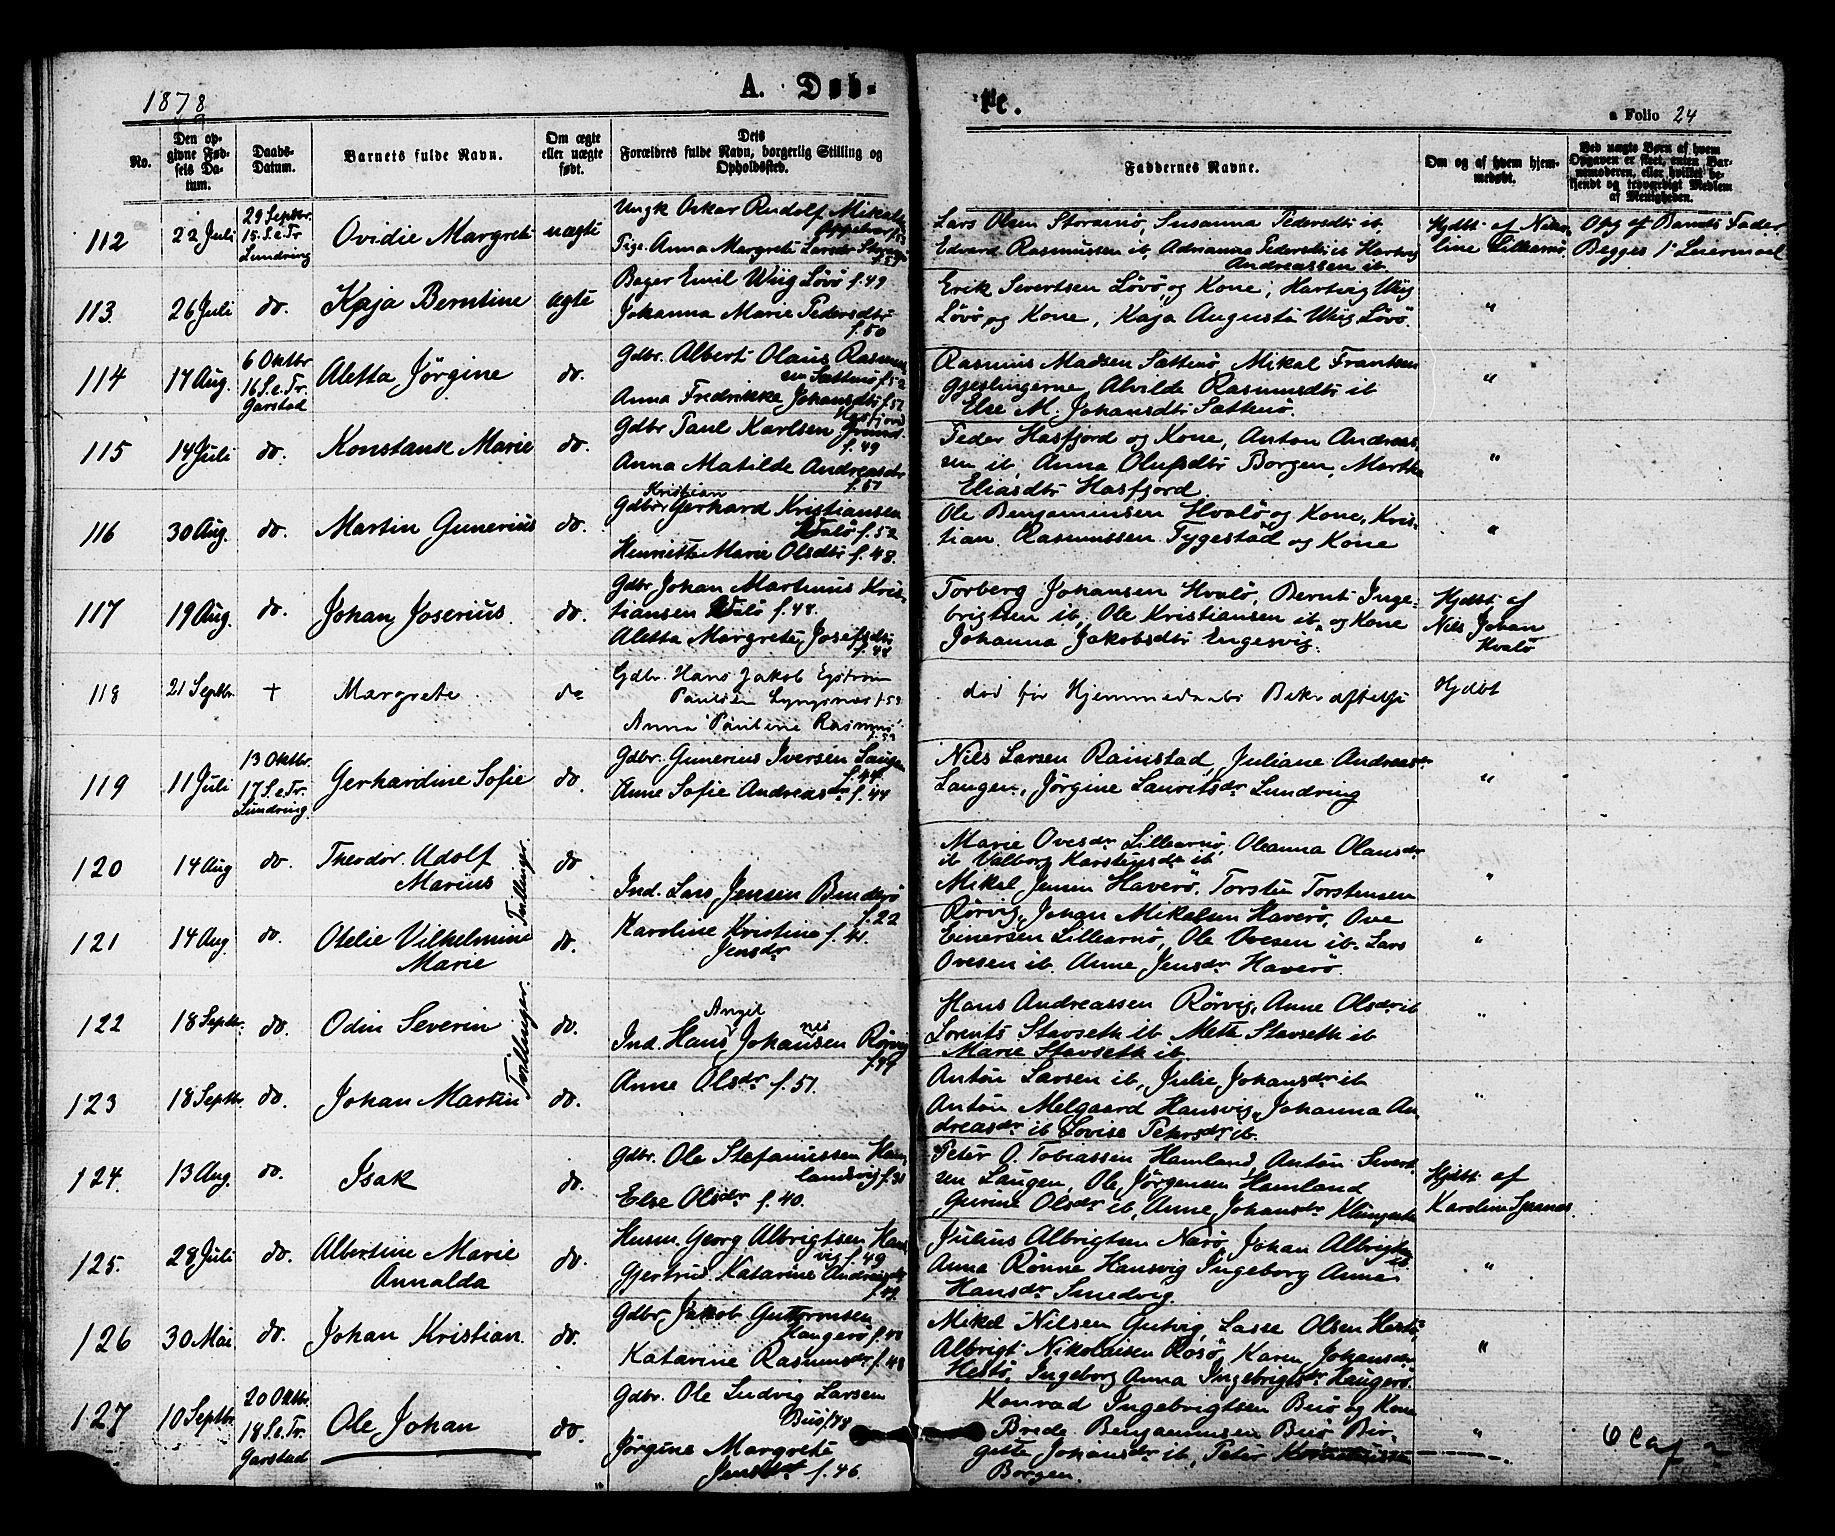 1878
A. Døb-
te.
a Folio 24
No.
Den op-
givne Fød-
sels Da-
tum.
Daabs-
Datum.
Barnets fulde Navn.
Om ægte
eller uægte
født.
Dets
Forældres fulde Navn, borgerlig Stilling og
Opholdssted.
Faddernes Navne.
Om og af hvem hjem-
medøbt.
Ved uægte Børn af hvem
Opgaven er skeet, enten Bar-
nemoderen, eller hvilket be-
kjendt og troværdigt Medlem
af Menigheden.
112
22 Juli
29 Septbr.
15. S. e. Tr.
Lundring
Ovidie Margrete
uægte
Ungk Oskar Rudolf Mikals
Pige. Anna Margrete Larsdt
Lars Olsen Storarnø, Susanna Pedersdtr ib,
Edvard Rasmussen ib, Adrianna Pedersdtr ib Hartvig
Andreassen ib.
Hjdbt. af Niko-
line Lillearnø.
Opg af Barnets Fader
Begges 1' Leiermaal
113.
26 Juli
do.
Kaja Berntine
ægte
Bager Emil Wiig Løvø f. 49
Johanna Marie Pedersdtr
f. 50
Erik Sivertsen Løvø, og Kone, Hartvig Wiig
Løvø, og Kone, Kaja Augusta Wiig Løvø.
"
114
17 Aug.
6 Oktbr
16 S. e. Tr.
Garstad
Aletta Jørgine
do.
Gdbr. Albert Olaus Rasmus
sen Sættenø f. 52
Anna Fredrikke Johansdtr f. 57
Rasmus Madsen Sættenø, Mikal Frantsen
Gjeslingerne, Alvilde Rasmusdtr ib
Else M. Johansdtr Sættenø.
"
115
14 Juli
do.
Konstanse Marie
do.
Gdbr Paul Karlsen
Hasfjord
f. 49
Anna Matilde Andreasdtr
f. 51
Peder Hasfjord og Kone, Anton Andreas-
sen ib, Anna Olufsdtr Borgen, Martha
Eliasdtr Hasfjord.
"
116
30 Aug.
do.
Martin Gunerius
do.
Kristian
Gdbr Gerhard Kristiansen
Hvalø f. 52
Henriette Marie Olsdtr f. 48.
Ole Benjaminsen Hvalø og Kone, Kris-
tian Rasmussen Tygestad og Kone
"
117
19 Aug.
do.
Johan Joserius.
do.
Gdbr Johan Martinus Kris-
tiansen Hvalø f. 48.
Aletta Margrete Josefsdtr
f. 48
Torberg Johansen Hvalø, Bernt Inge-
brigtsen ib, Ole Kristiansen ib, og Kone
Johanna Jakobsdtr Engesvig.
Hjdbt. af
Nils Johan
Hvalø
118
21 Septbr.
+
Margrete
do
Gdbr. Hans Jakob Egstrøm
Paulsen Lyngsnæs f. 53
Anna Pauline Rasmus
f. 53
død før Hjemmedaabs Bekræftelse
Hjdbt
119
11 Juli
13 Oktbr.
17 S. e. Tr.
Lundring
Gerhardine Sofie
do.
Gdbr. Gunerius Iversen Laugen
f. 44
Anne Sofie Andreasdr f. 44
Nils Larsen Ramstad, Juliane Andreasdr
Laugen, Jørgine Lauritsdr Lundring
"
120
14 Aug
do.
Theodor Adolf
Marius
Tvillinger.
do
Ind. Lars Jensen Benderø
f. 22
Karoline Kristine f. 41.
Jensdr
Marie Ovesdr Lillearnø, Oleanna Olausdr
ib Valborg Karstensdr ib,
Mikal Jensen Haverø, Torsten Torstensen
"
121
14 Aug.
do.
Otelie Vilhelmine
Marie
do.
Rørvig, Johan Mikalsen Haverø, Ove
Einersen Lillearnø, Ole Ovesen ib. Lars
Ovesen ib. Anne Jensdr Haverø.
"
122
18 Septr.
do.
Odin Severin
Tvillinger.
do.
Angel
nes
Ind. Hans Johansen Rørvig
f. 49
Anne Olsdr f. 51.
Hans Andreassen Rørvig, Anne Olsdr ib
Lorents Stavseth ib. Mette Stavseth ib
Marie Stavseth ib.
"
123
18 Septbr.
do.
Johan Martin
do.
Anton Larsen ib, Julie Johansdr ib
Anton Melgaard Hansvig, Johanna An
dreasdr ib Lovise Petersdr ib.
"
124.
13 Aug.
do.
Isak
do.
Gdbr. Ole Stefanussen Ham
landsvig f. 31
Else Olsdr f. 40.
Peter O. Tobiassen Hamland, Anton Sivert
sen Laugen, Ole Jørgensen Hamland
Gurine Olsdr ib, Anne Johansdr
Hjdbt. af
Karoline
125.
28 Juli
do.
Albertine Marie
Annalda
do.
Husm. Georg Albrigtsen Hans
vig f. 49
Gjertrud Katarine Andreasdr
f. 49
Julius Albrigtsen Nærø, Johan Albrigtsen
ib.
Anna Rønne Hansvig Ingeborg Anne
Hansdr Smedvig.
"
126
30 Mai
do.
Johan Kristian
do.
Gdbr Jakob Guttormsen
Haugerø f. 40
Katarine Rasmusdr f. 48
Mikal Nilsen Gutvig, Lasse Olsen Hestø,
Albrigt Nikolaisen Rosø, Karen Johansdr
Hestø, Ingeborg Anna Ingebrigtsdr Haugerø.
"
127
10 Septbr.
20 Oktbr.
18 S. e. Tr.
Garstad
Ole Johan
do.
Gdbr. Ole Ludvig Larsen
Buø f. 48
Jørgine Margrete
Jensdtr f. 46.
Konrad Ingebrigtsen Buø og Kone
Brede Benjaminsen Buø Bir-
gitte Johansdr ib, Peter
Borgen.
"